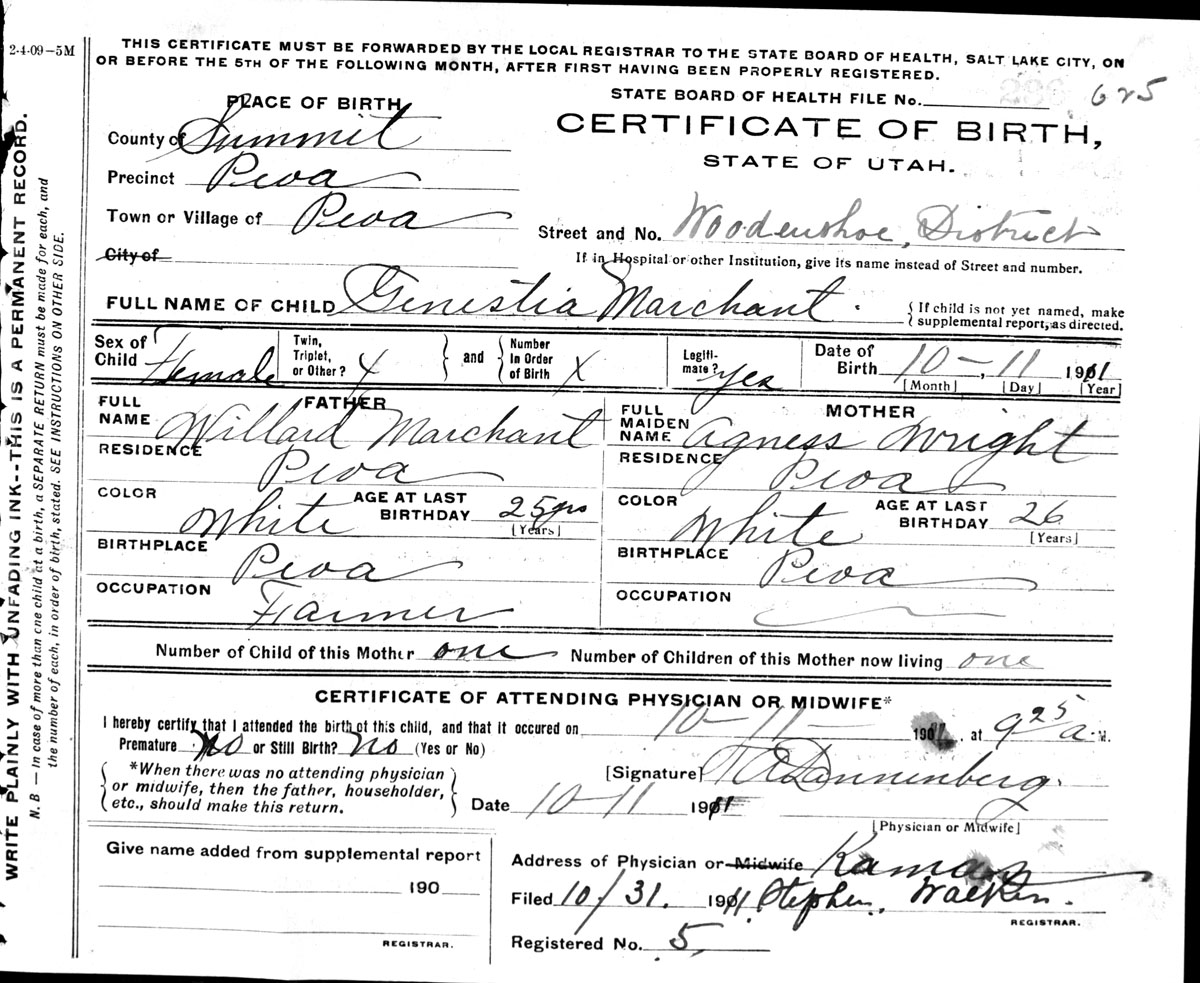 2-4-09-5M
THIS CERTIFICATE MUST BE FORWARDED BY THE LOCAL REGISTRAR TO THE STATE BOARD OF HEALTH, SALT LAKE CITY, ON
OR BEFORE THE 5TH OF THE FOLLOWING MONTH, AFTER FIRST HAVING BEEN PROPERLY REGISTERED.
STATE BOARD OF HEALTH FILE No. 625
PLACE OF BIRTH
CERTIFICATE OF BIRTH,
STATE OF UTAH.
County of Summit
Precinct Peoa
Town or Village of Peoa
City of
Street and No. Woodenshoe, District
If in Hospital or other Institution, give its name instead of Street and number.
FULL NAME OF CHILD Genestia Marchant.
{If child is not yet named, make
supplemental report, as directed.
Sex of Child Female
Twin, Triplet, or Other? X
and
Number In Order of Birth X
Legitimate? Yes
Date of Birth 10-, 11 1911
[Month] [Day] [Year]
FATHER
FULL NAME Willard Marchant
RESIDENCE Peoa
COLOR White
AGE AT LAST BIRTHDAY 25 yrs
[Years]
BIRTHPLACE Peoa
OCCUPATION Farmer
MOTHER
FULL MAIDEN NAME Agness Wright
RESIDENCE Peoa
COLOR White
AGE AT LAST BIRTHDAY 26
[Years]
BIRTHPLACE Peoa
OCCUPATION
Number of Child of this Mother one Number of Children of this Mother now living one
CERTIFICATE OF ATTENDING PHYSICIAN OR MIDWIFE*
I hereby certify that I attended the birth of this child, and that it occured on 10-11- 190, at 9 25 a.M.
Premature No or Still Birth? No (Yes or No)
{*When there was no attending physician
or midwife, then the father, householder,
etc., should make this return.}
[Signature] Dannenberg.
Date 10-11 1911
[Physician or Midwife]
Give name added from supplemental report
190
REGISTRAR.
Address of Physician or Midwife Kamas
Filed 10/31. 1911. Stephen, Walker.
REGISTRAR.
Registered No. 5,
WRITE PLAINLY WITH UNFADING INK--THIS IS A PERMANENT RECORD.
N. B — In case of more than one child at a birth, a SEPARATE RETURN must be made for each, and
the number of each, in order of birth, stated. SEE INSTRUCTIONS ON OTHER SIDE.